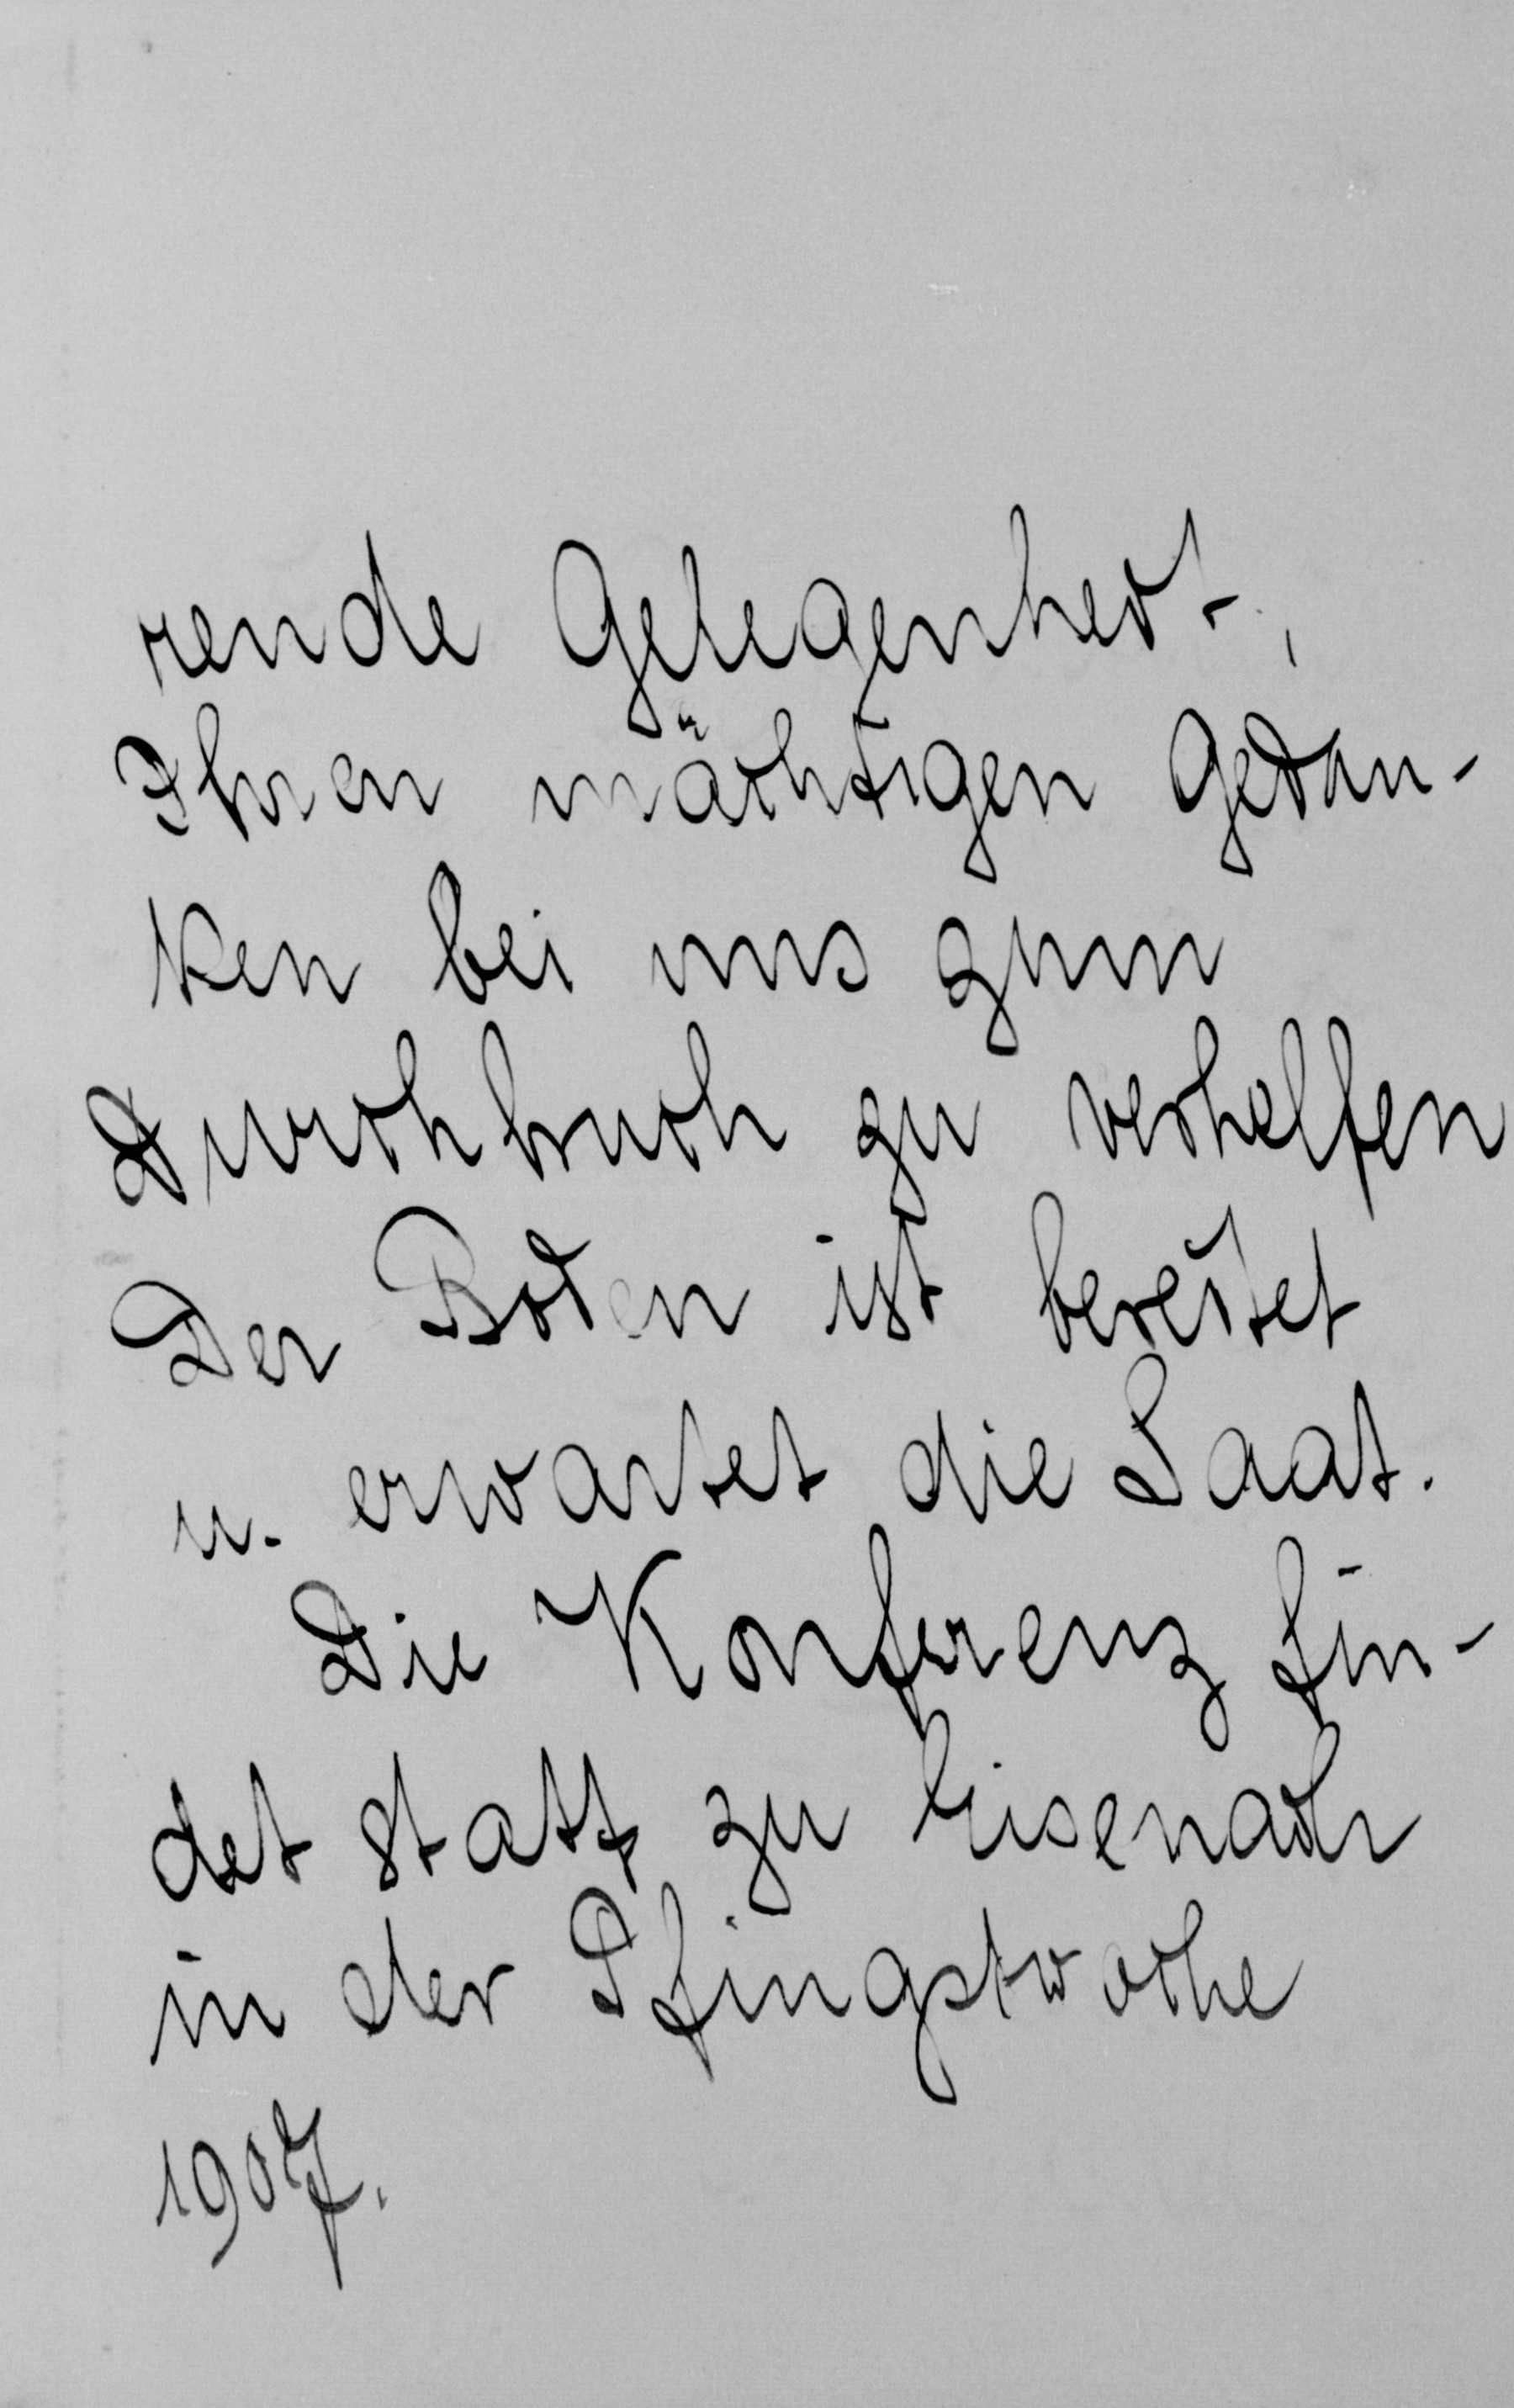 rende Gelegenheit,
Ihren mächtigen Gedan-
ken bei uns zum
Durchbruch zu verhelfen
Der Boden ist bereitet
u. erwartet die Saat.
Die Konferenz fin-
det statt zu Eisenach
in der Pfingstwoche
1907.